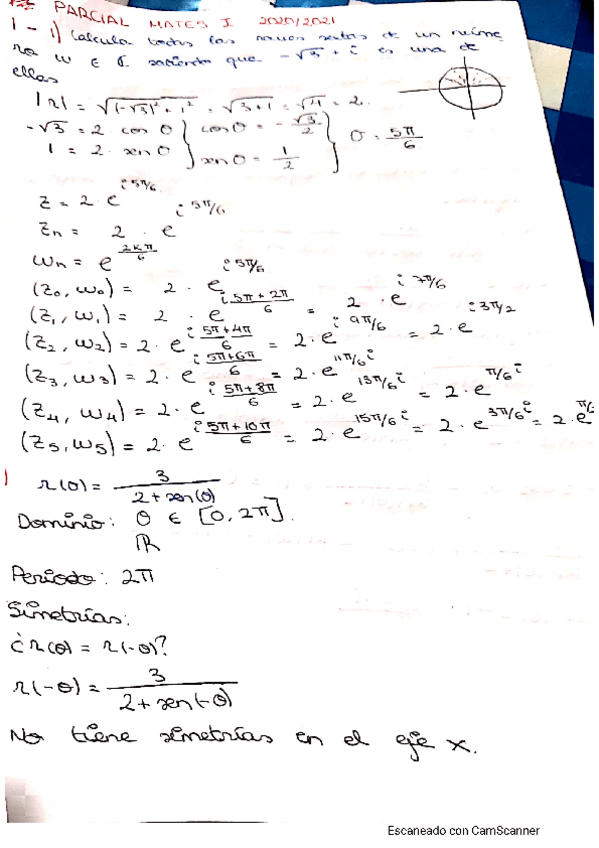 PARCIAL MATES I 2020/2021
1 - 1) Calcula todas las raíces sextas de un núme
ro w ∈ ℂ sabiendo que -√3 + i es una de
ellas
|r| = √((-√3)² + 1²) = √(3+1) = √4 = 2.
-√3 = 2 cos θ } cos θ = -√3/2 } θ = 5π/6
1 = 2 · sen θ } sen θ = 1/2
z = 2 · e^(i 5π/6)
zn = 2 · e^(i 5π/6)
wn = e^(2kπ/6)
(z0, w0) = 2 · e^(i 5π/6)
(z1, w1) = 2 · e^(i (5π+2π)/6) = 2 · e^(i 7π/6)
(z2, w2) = 2 · e^(i (5π+4π)/6) = 2 · e^(i 9π/6) = 2 · e^(i 3π/2)
(z3, w3) = 2 · e^(i (5π+6π)/6) = 2 · e^(11π/6 i)
(z4, w4) = 2 · e^(i (5π+8π)/6) = 2 · e^(13π/6 i) = 2 · e^(π/6 i)
(z5, w5) = 2 · e^(i (5π+10π)/6) = 2 · e^(15π/6 i) = 2 · e^(3π/6 i) = 2 · e
) r(θ) = 3/(2+sen(θ))
Dominio: θ ∈ [0, 2π].
ℝ
Periodo: 2π
Simetrías:
¿r(θ) = r(-θ)?
r(-θ) = 3/(2+sen(-θ))
No tiene simetrías en el eje x.
Escaneado con CamScanner